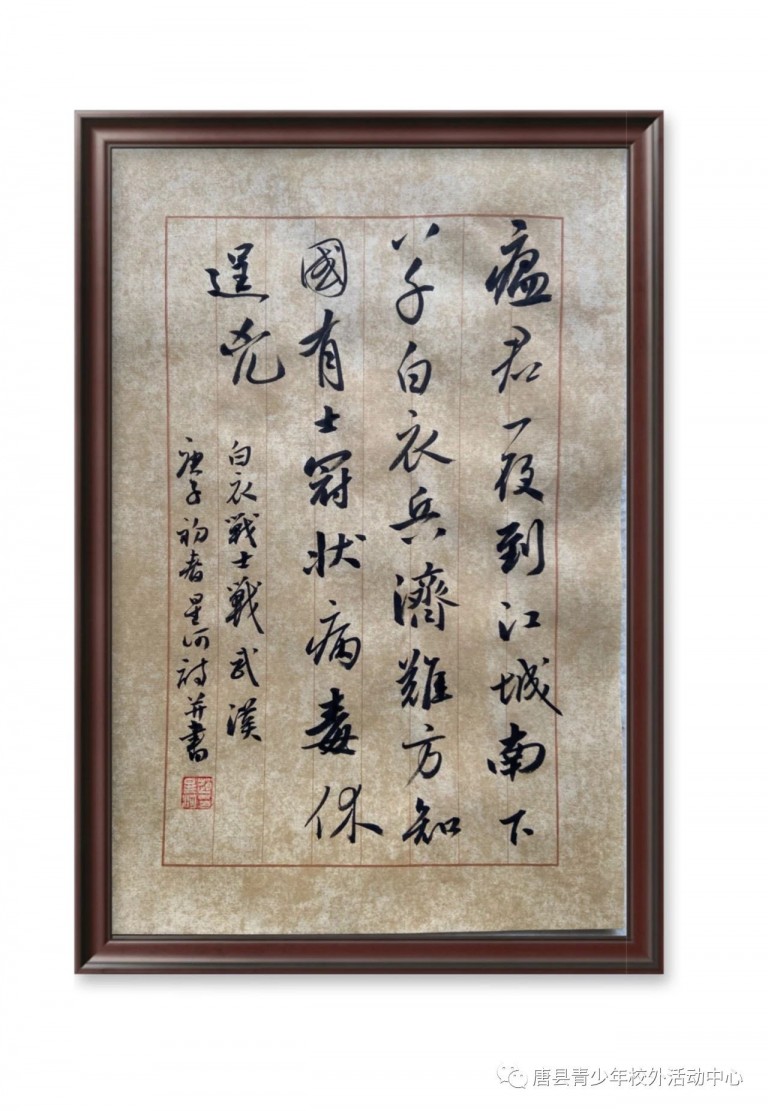 瘟君一夜到江城南下
八千白衣兵濟難方知
國有士冠状病毒休
逞兇
白衣戰士戰武漢
庚子初春星河詩并書
唐县青少年校外活动中心